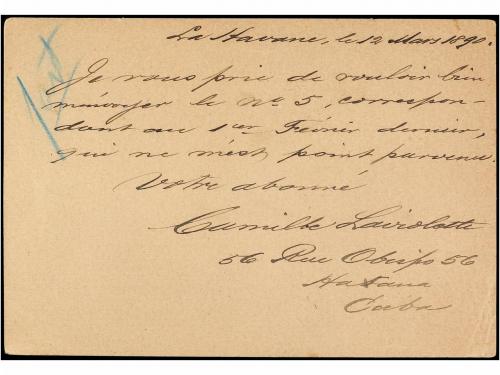 La Havane, le 12 Mars 1890.
Je vous prie de vouloir bien
m'envoyer le No 5, correspon-
dant au 1er Février dernier,
qui ne m'est point parvenu.
Votre abonné
Camille
56 Rue Obispo 56
Habana
Cuba